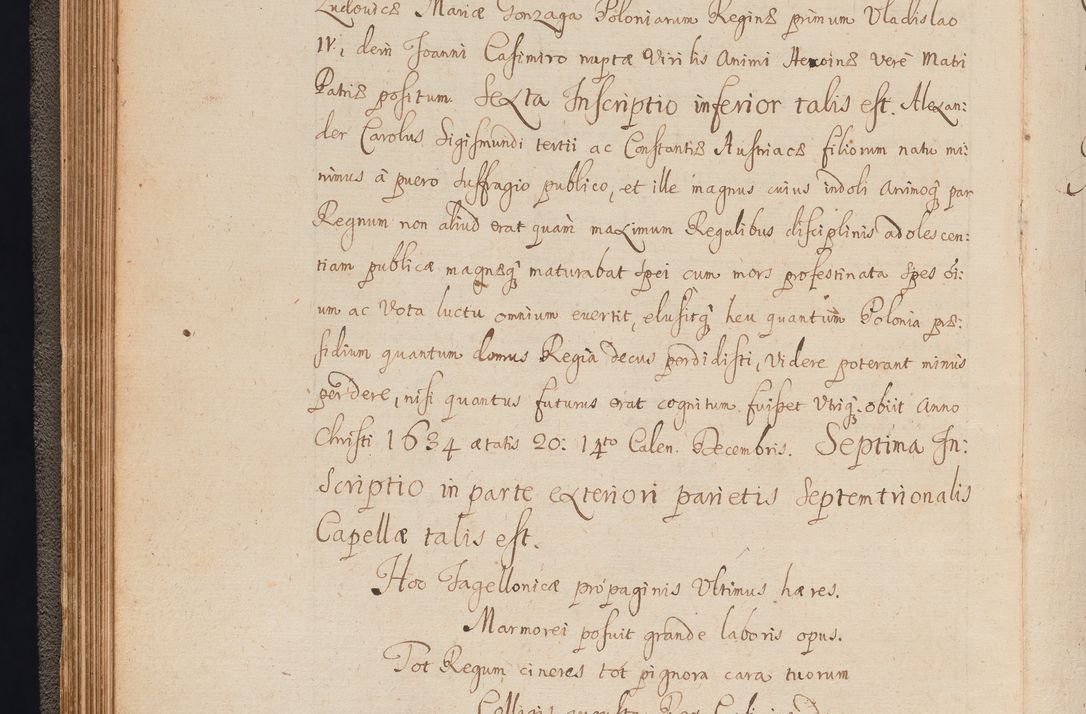 Ludovicæ Mariæ Gonzaga Poloniarum Reginæ primum Vladislao
IV, dein Joanni Casimiro nuptæ Virilis Animi Heroinæ verè Matri
Patriæ positum. Sexta Inscriptio inferior talis est. Alexan:
der Carolus Sigismundi tertii ac Constantiæ Austriacæ filiorum natu mi:
nimus à puero suffragio publico, et ille magnus cuius indoli animoq́ par
Regnum non aliud erat quam maximum Regalibus disciplinis adolescen:
tiam publicæ magnæq́ maturabat spei cum mors præfestinata spes ói:
um ac vota luctu omnium evertit, elusitq́ heu quantum Polonia præ:
sidium quantum domus Regia decus perdidisti, Videre poterant minus
perdere, nisi quantus futurus erat cognitum fuisset Utriq́. obiit Anno
Christi 1634 ætatis 20: 14to Calen. Decembris. Septima In:
scriptio in parte exteriori parietis Septemtrionalis
Capellæ talis est.
Hoc Jagellonicæ propaginis Ultimus hæres.
Marmorei posuit grande laboris opus.
Tot Regum cineres tot pignora cara tuorum